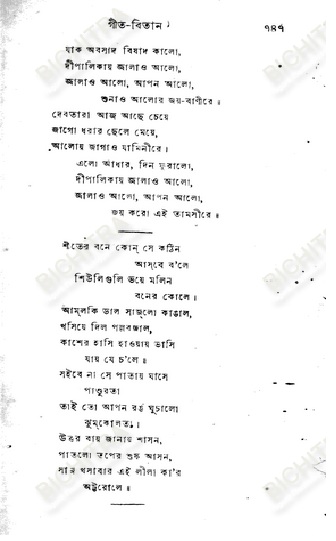 গীত-বিতান
৭৪৭
যাক অবসাদ বিষাদ কালো,
দীপালিকায় জ্বালাও আলো,
জ্বালাও আলো, আপন আলো,
শুনাও আলোর জয়-বাণীরে॥
দেবতারা আজ আছে চেয়ে
জাগো ধরার ছেলে মেয়ে,
আলোয় জাগাও যামিনীরে।
এলো আঁধার, দিন ফুরালো,
দীপালিকায় জ্বালাও আলো,
জ্বালাও আলো, আপন আলো,
জয় করো এই তামসীরে॥
শীতের বনে কোন্ সে কঠিন
আস্‌বে ব'লে
শিউলিগুলি ভয়ে মলিন
বনের কোলে॥
আম্‌লকি ডাল সাজ্‌লো কাঙাল,
খসিয়ে দিল পল্লবজাল,
কাশের হাসি হাওয়ায় ভাসি
যায় যে চ'লে॥
সইবে না সে পাতায় ঘাসে
পাণ্ডুরতা
তাই তো আপন রঙ ঘুচালো
ঝুম্‌কোলতা।
উত্তর বায় জানায় শাসন,
পাতলো তপের শুষ্ক আসন,
সাজ খসাবার এই লীলা কা'র
অট্টরোলে॥
BICHITRA